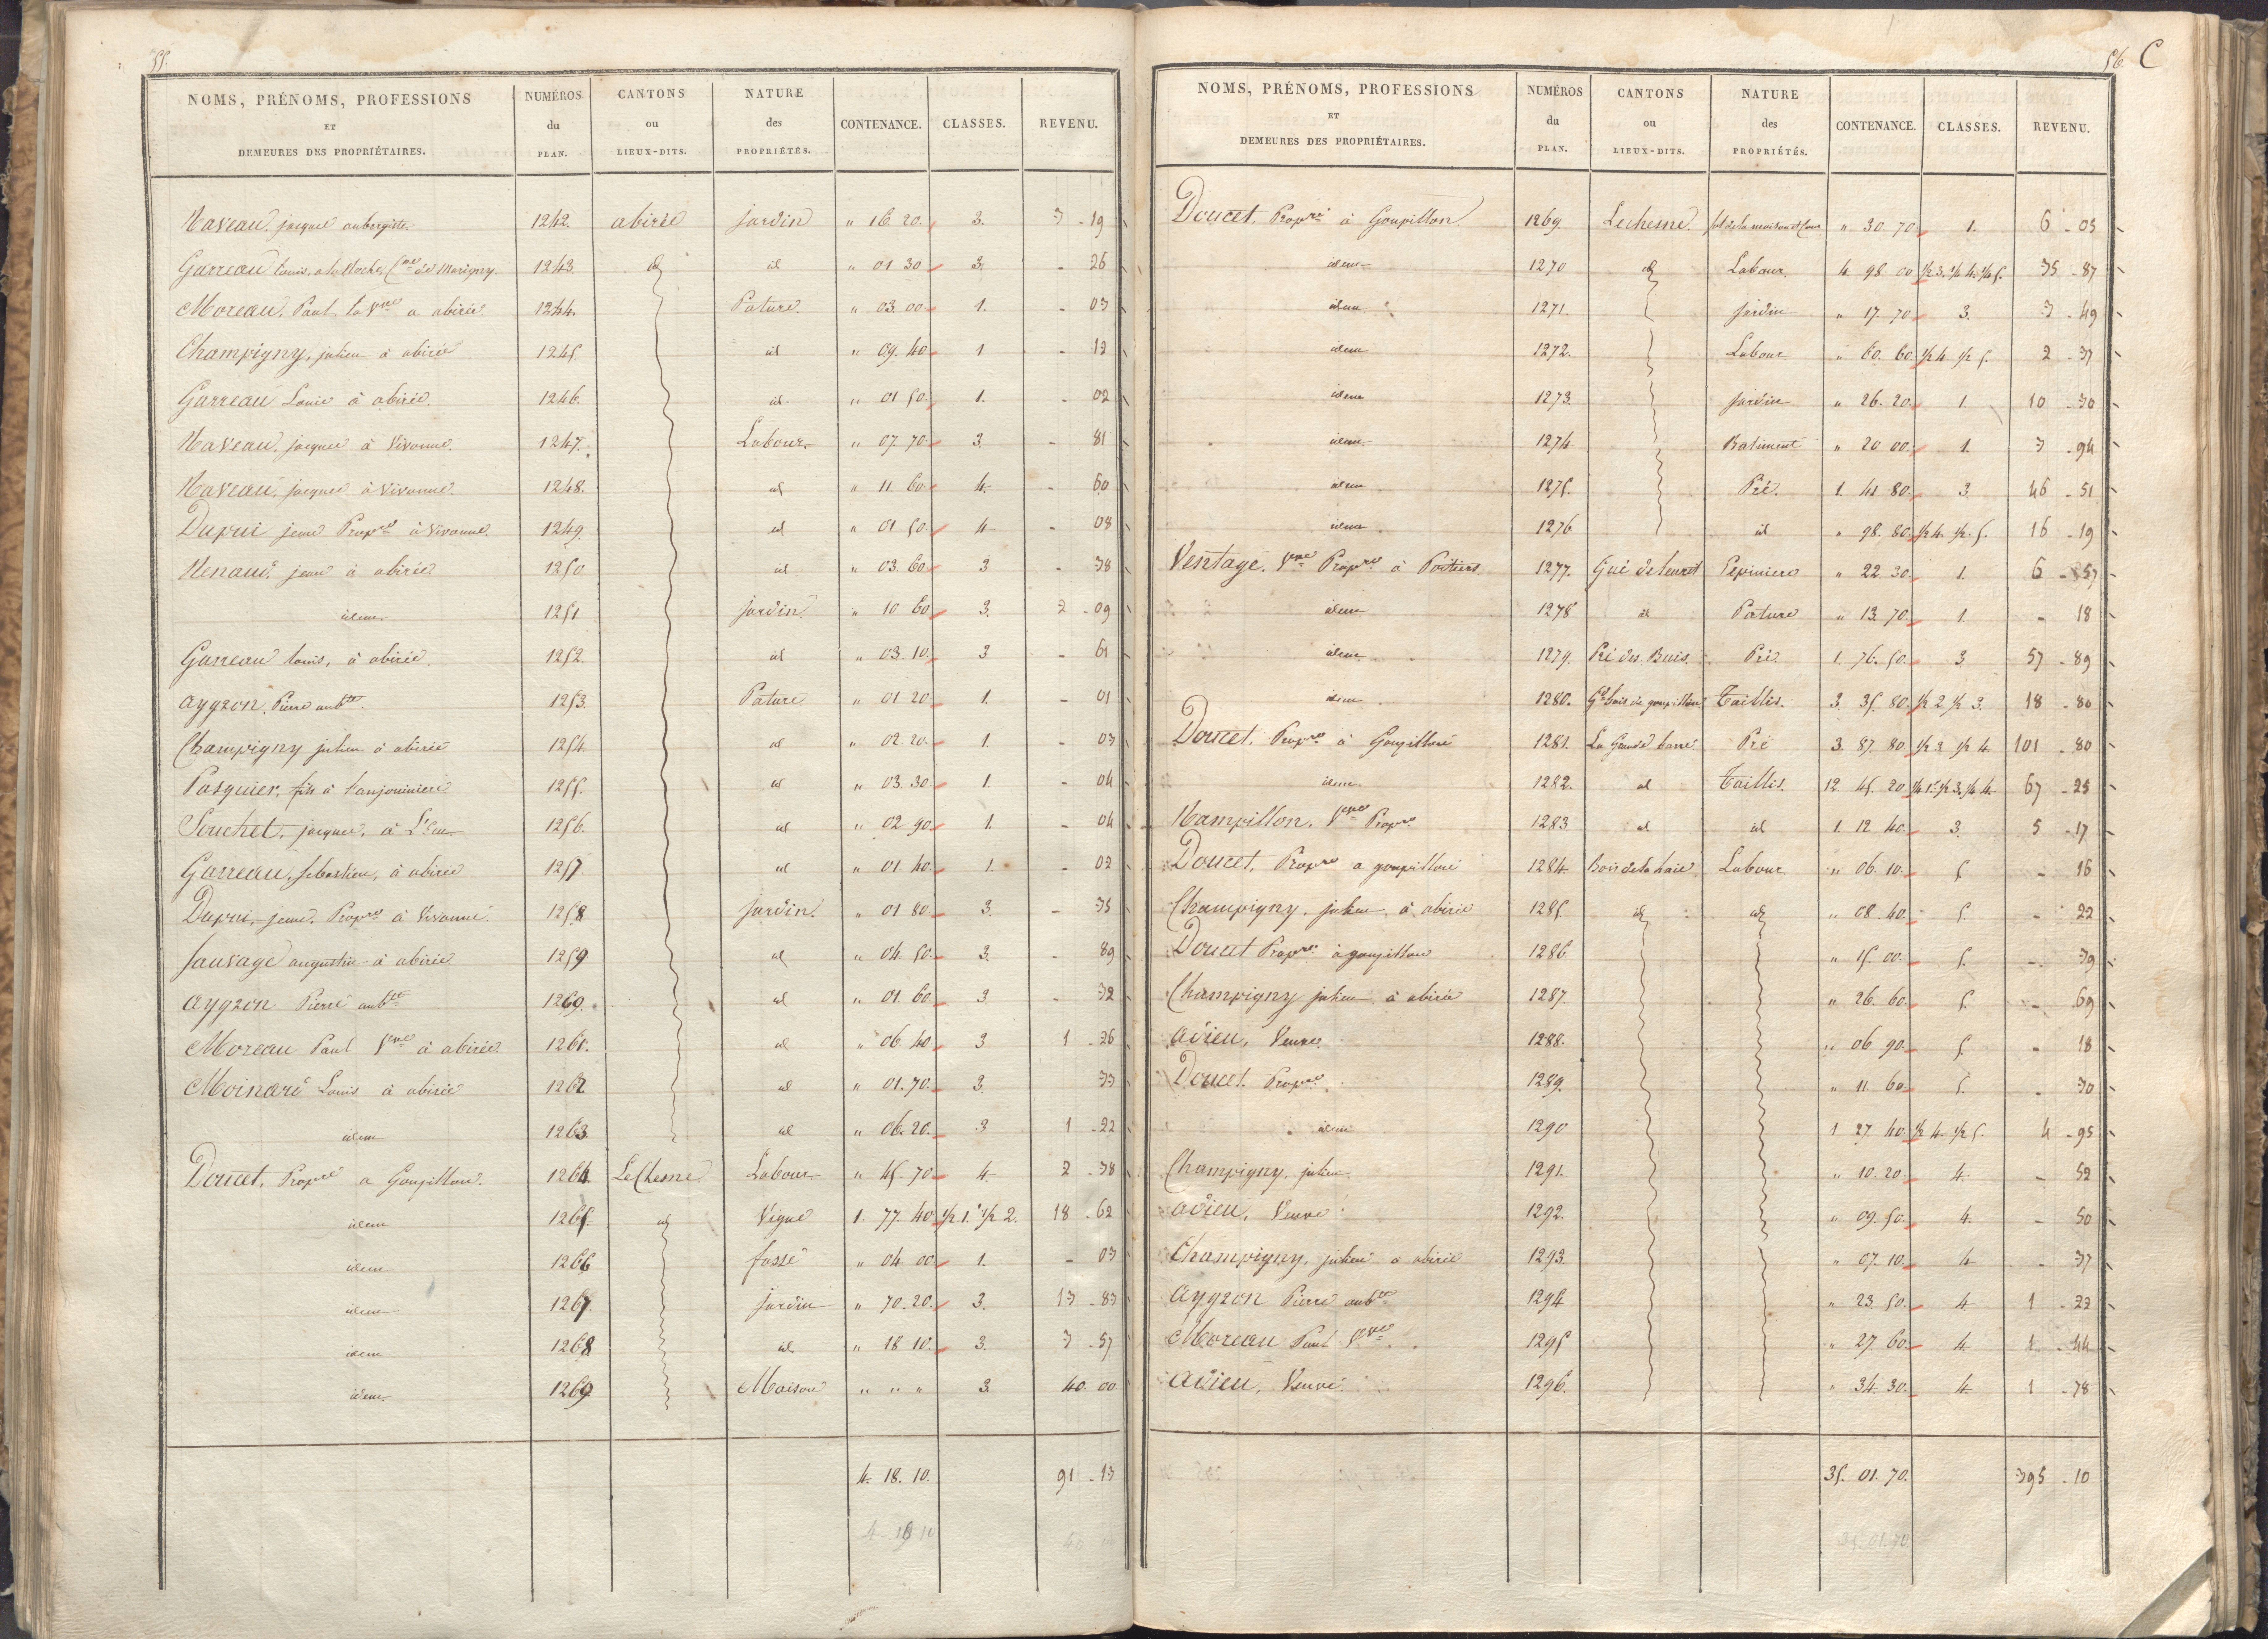 55.
NOMS, PRÉNOMS, PROFESSIONS ET DEMEURES DES PROPRIÉTAIRES. NUMÉROS du PLAN. CANTONS ou LIEUX-DITS. NATURE des PROPRIÉTÉS. CONTENANCE. CLASSES. REVENU.
Naveau, jacques aubergiste. 1242. abirée jardin " 16. 20. 3. 3 - 19
Garreau louis, a la Roche Cne de Marigny. 1243. id id " 01 30 3. - 26
Moreau, Paul, la Vve a abirée 1244. Pature. " 03. 00. 1. - 03
Champigny, julien à abirée 1245. id " 09. 40 1 - 12
Garreau Louis à abirée. 1246. id " 01 50. 1. - 02
Naveau, jacques à Vivonne. 1247. Labour. " 07. 70. 3. - 81
Naveau, jacques à Vivonne. 1248. id " 11. 60. 4. - 60
Dupui jeune Propre à Vivonne. 1249. id " 01 50. 4 - 08
Renaud, jean à abirée 1250 id " 03. 60. 3 - 38
idem 1251 jardin. " 10 60 3. 2 - 09
Garreau louis, à abirée. 1252. id " 03. 10. 3 - 61
aygron, Pierre aubte. 1253. Pature. " 01 20. 1. - 01
Champigny julien à abirée 1254. id " 02. 20. 1. - 03
Pasquier, fils à lanjouiniere 1255. id " 03. 30. 1. - 04
Souchet, jacques, à 1256. id " 02 90. 1. - 04
Garreau, sebastien, à abirée 1257. id " 01. 40. 1. - 02
Dupui, jeune, Propre à Vivonne. 1258 jardin. " 01 80. 3. - 35
Sauvage augustin à abirée 1259 id " 04. 50. 3. - 89
aygron Pierre aubte 1260. id " 01. 60. 3 - 32
Moreau Paul Vve à abirée. 1261. id " 06. 40. 3 1 - 26
Moinard Louis à abirée 1262 id " 01. 70. 3. 33
idem 1263 id " 06. 20. 3 1 - 22
Doucet, Propre a Goupillon. 1264. Le Chesne Labour " 45. 70. 4. 2 - 38
idem 1265. id Vigne 1. 77. 40 1/2 1. 1/2 2. 18 - 62
idem 1266 fossé " 04. 00. 1. - 03
idem 1267. jardin " 70. 20. 3. 13 - 83
idem 1268 id. " 18 10. 3. 3 - 57
idem 1269 Maison " " " 3. 40. 00
4. 18. 10. 91 - 13
56. C
NOMS, PRÉNOMS, PROFESSIONS ET DEMEURES DES PROPRIÉTAIRES. NUMÉROS du PLAN. CANTONS ou LIEUX-DITS. NATURE des PROPRIÉTÉS. CONTENANCE. CLASSES. REVENU.
Doucet, Propre à Goupillon 1269. Lechesne. sol de la maison et Cour " 30 70 1. 6 - 03
idem 1270 id Labour. 4. 98 00 1/2 3. 1/4 4. 1/4 5. 35 - 87
idem 1271. jardin " 17. 70. 3. 3 - 49
idem 1272. Labour " 60. 60. 1/2 4 1/2 5. 2 - 37
idem 1273. jardin " 26. 20. 1. 10 - 30
idem 1274 Batiment " 20 00. 1. 3 - 94
idem 1275. Pré. 1. 41 80. 3. 46 - 51
idem 1276 id " 98. 80. 1/2 4. 1/2. 5. 16 - 19
Ventagé. Vve Propre à Poitiers. 1277. Gué de leuret Pepiniere " 22 30. 1. 6 - 57
idem 1278 id Pature " 13. 70. 1. - 18
idem 1279. Pré des Buis. Pré 1. 76. 50. 3 57 - 89
idem 1280. Gd bois de goupillon Taillis. 3. 35. 80. 1/2 2 1/2 3. 18 - 80
Doucet, Propre à Goupillon 1281. La Grande barre Pré 3. 87. 80. 1/2 3. 1/2 4. 101 - 80
idem. 1282. id Taillis. 12 45. 20 1/4 1. 1/2 3. 1/4 4. 67 - 25
Rampillon, Vve Propre 1283 id id 1. 12 40. 3. 5 - 17
Doucet, Propre a goupillon 1284. Bois de la haie Labour. " 06. 10. 5. - 16
Champigny, julien à abirée 1285. id id " 08. 40. 5. - 22
Doucet Propre à goupillon 1286. " 15. 00. 5. - 39
Champigny julien à abirée 1287. " 26. 60. 5. - 69
adieu, Veuve. 1288. " 06 90. 5. - 18
Doucet, Propre. 1289. " 11. 60. 5. - 30
idem 1290 1 27. 40. 1/2 4. 1/2 5. 4 - 95
Champigny, julien 1291. " 10. 20. 4. - 52
adieu, Veuve 1292. " 09. 50. 4. - 50
Champigny, julien à abirée 1293. " 07. 10. 4 - 37
aygron Pierre aubte 1294 " 23. 50. 4 1 - 22
Moreau Paul Vve. 1295 " 27. 60. 4. 1 - 44
adieu, Veuve. 1296. " 34. 30. 4. 1 - 78
35. 01. 70. 395 - 10
35. 01. 70